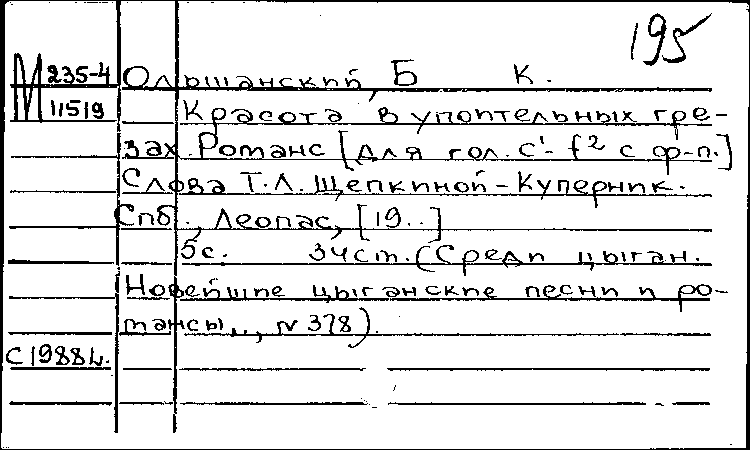 195
М 235-4 Ольшанский, Б К.
11519 Красота в упоительных гре-
зах. Романс [Для гол. c¹- f² с ф-п.]
Слова Т.Л. Щепкиной-Куперник.
Спб., Леопас, [19..]
5с. 34см. (Среди цыган.
Новейшие цыганские песни и ро-
мансы.., N 378).
С 1988 г.